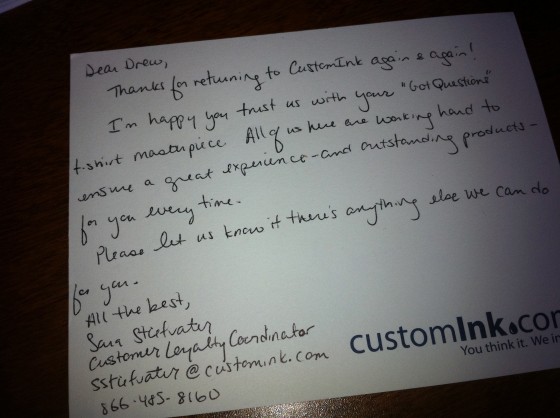 Dear Drew,
Thanks for returning to CustomInk again & again!
I'm happy you trust us with your "Got Questions"
t-shirt masterpiece. All of us here are working hard to
ensure a great experience - and outstanding products -
for you every time.
Please let us know if there's anything else we can do
for you.
All the best,
Sara Stiefvater
Customer Loyalty Coordinator
sstiefvater@customink.com
866-485-8160
customInk.com
You think it. We in